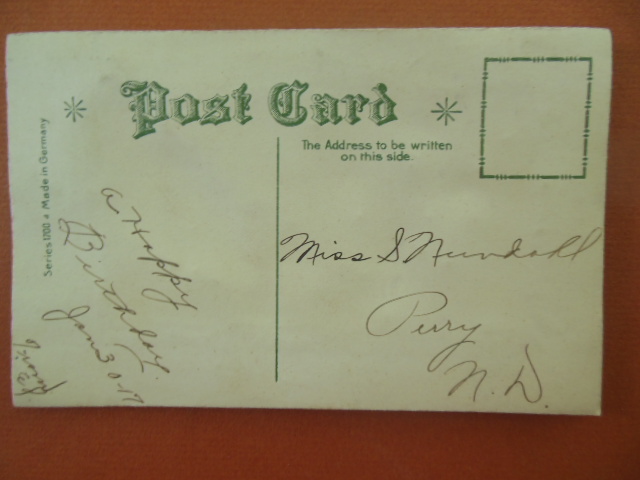 Post Card
The Address to be written
on this side.
Series 1700 a Made in Germany
a Happy
Birthday.
Jan 30-17
Miss S Neundahl
Perry
N.D.